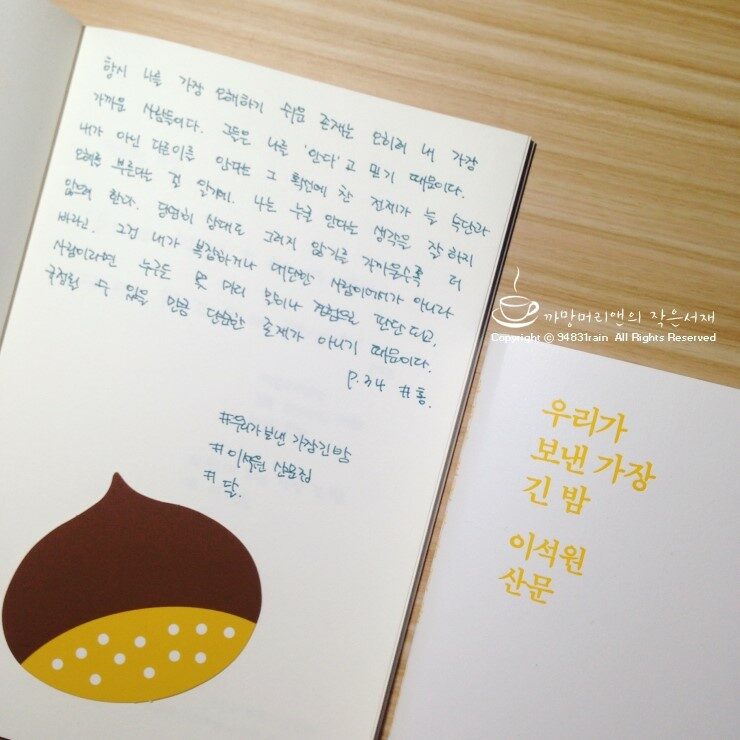 항시 나를 가장 오해하기 쉬운 존재는 오히려 내 가장
가까운 사람들이다. 그들은 나를 '안다'고 믿기 때문이다.
내가 아닌 다른이를 안다는 그 확신에 찬 전제가 늘 속단과
오해를 부른다는 걸 알기에. 나는 누굴 안다는 생각은 잘 하지
않으려 한다. 당연히 상대도 그러지 않기를 가까울수록 더
바라고. 그건 내가 복잡하거나 대단한 사람이어서가 아니라
사람이라면 누구든 몇 마디 말이나 경험으로 판단되고,
규정될 수 있을 만큼 단순한 존재가 아니기 때문이다.
P.34 #톰.
#우리가보낸 가장긴밤
#이석원 산문집
#달.
까망머리앤의 작은서재
Copyright © 94831rain All Rights Reserved
우리가
보낸 가장
긴 밤
이석원
산문